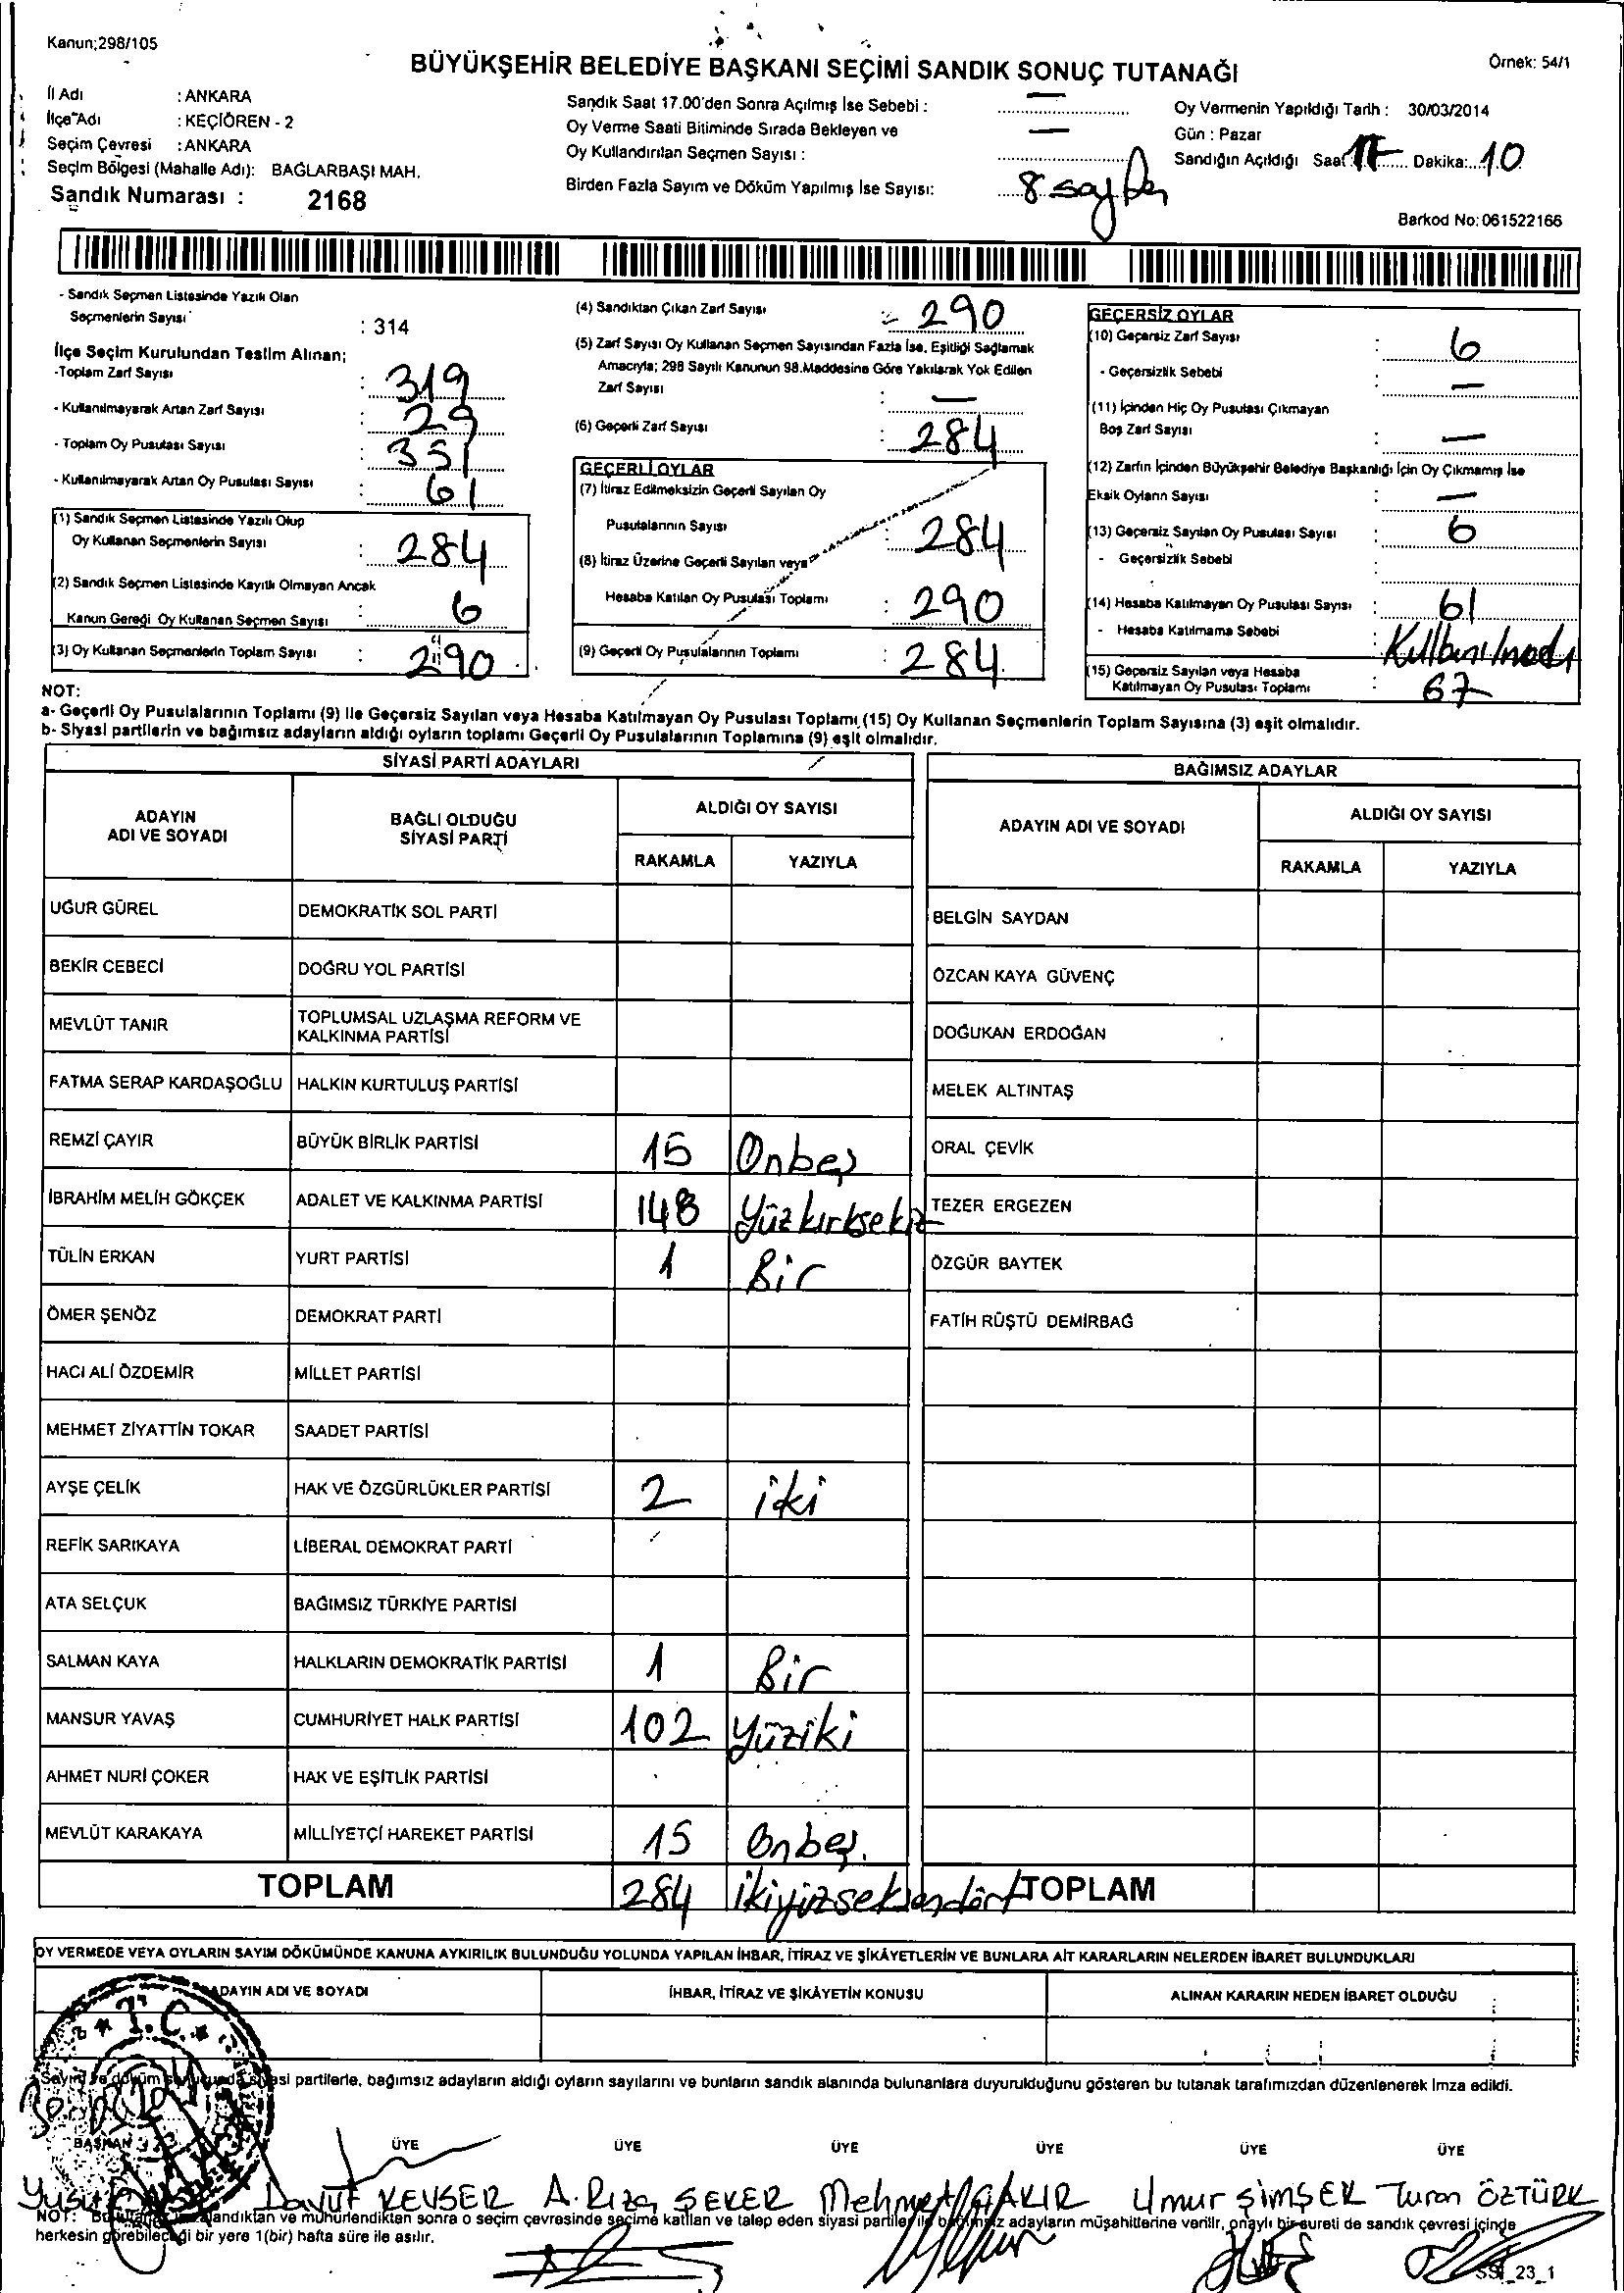 Kanun;298/105
BÜYÜKŞEHİR BELEDİYE BAŞKANI SEÇİMİ SANDIK SONUÇ TUTANAĞI
Örnek: 54/1
İl Adı : ANKARA
İlçe Adı : KEÇİÖREN - 2
Seçim Çevresi : ANKARA
Seçim Bölgesi (Mahalle Adı): BAĞLARBAŞI MAH.
Sandık Numarası : 2168
Sandık Saat 17.00'den Sonra Açılmış İse Sebebi : —
Oy Verme Saati Bitiminde Sırada Bekleyen ve
Oy Kullandırılan Seçmen Sayısı : —
Birden Fazla Sayım ve Döküm Yapılmış İse Sayısı:
Oy Vermenin Yapıldığı Tarih : 30/03/2014
Gün : Pazar
Sandığın Açıldığı Saat 17 Dakika: 10
Barkod No: 061522166
- Sandık Seçmen Listesinde Yazılı Olan
Seçmenlerin Sayısı : 314
İlçe Seçim Kurulundan Teslim Alınan;
-Toplam Zarf Sayısı : 319
- Kullanılmayarak Artan Zarf Sayısı : 29
- Toplam Oy Pusulası Sayısı : 351
- Kullanılmayarak Artan Oy Pusulası Sayısı : 61
(1) Sandık Seçmen Listesinde Yazılı Olup
Oy Kullanan Seçmenlerin Sayısı : 284
(2) Sandık Seçmen Listesinde Kayıtlı Olmayan Ancak
Kanun Gereği Oy Kullanan Seçmen Sayısı : 6
(3) Oy Kullanan Seçmenlerin Toplam Sayısı : 290
(4) Sandıktan Çıkan Zarf Sayısı : 290
(5) Zarf Sayısı Oy Kullanan Seçmen Sayısından Fazla İse, Eşitliği Sağlamak
Amacıyla; 298 Sayılı Kanunun 98.Maddesine Göre Yakılarak Yok Edilen
Zarf Sayısı : —
(6) Geçerli Zarf Sayısı : 284
GEÇERLİ OYLAR
(7) İtiraz Edilmeksizin Geçerli Sayılan Oy
Pusulalarının Sayısı : 284
(8) İtiraz Üzerine Geçerli Sayılan veya
Hesaba Katılan Oy Pusulası Toplamı : 290
(9) Geçerli Oy Pusulalarının Toplamı : 284
GEÇERSİZ OYLAR
(10) Geçersiz Zarf Sayısı : 6
- Geçersizlik Sebebi : —
(11) İçinden Hiç Oy Pusulası Çıkmayan
Boş Zarf Sayısı : —
(12) Zarfın İçinden Büyükşehir Belediye Başkanlığı İçin Oy Çıkmamış İse
Eksik Oyların Sayısı : —
(13) Geçersiz Sayılan Oy Pusulası Sayısı : 6
- Geçersizlik Sebebi
(14) Hesaba Katılmayan Oy Pusulası Sayısı : 61
- Hesaba Katılmama Sebebi :
(15) Geçersiz Sayılan veya Hesaba
Katılmayan Oy Pusulası Toplamı : 67
NOT:
a- Geçerli Oy Pusulalarının Toplamı (9) ile Geçersiz Sayılan veya Hesaba Katılmayan Oy Pusulası Toplamı (15) Oy Kullanan Seçmenlerin Toplam Sayısına (3) eşit olmalıdır.
b- Siyasi partilerin ve bağımsız adayların aldığı oyların toplamı Geçerli Oy Pusulalarının Toplamına (9) eşit olmalıdır.
SİYASİ PARTİ ADAYLARI
BAĞIMSIZ ADAYLAR
ADAYIN ADI VE SOYADI
BAĞLI OLDUĞU SİYASİ PARTİ
ALDIĞI OY SAYISI
RAKAMLA YAZIYLA
ADAYIN ADI VE SOYADI
ALDIĞI OY SAYISI
RAKAMLA YAZIYLA
UĞUR GÜREL DEMOKRATİK SOL PARTİ BELGİN SAYDAN
BEKİR CEBECİ DOĞRU YOL PARTİSİ ÖZCAN KAYA GÜVENÇ
MEVLÜT TANIR TOPLUMSAL UZLAŞMA REFORM VE KALKINMA PARTİSİ DOĞUKAN ERDOĞAN
FATMA SERAP KARDAŞOĞLU HALKIN KURTULUŞ PARTİSİ MELEK ALTINTAŞ
REMZİ ÇAYIR BÜYÜK BİRLİK PARTİSİ 15 Onbeş ORAL ÇEVİK
İBRAHİM MELİH GÖKÇEK ADALET VE KALKINMA PARTİSİ 148 Yüzkırksekiz TEZER ERGEZEN
TÜLİN ERKAN YURT PARTİSİ 1 Bir ÖZGÜR BAYTEK
ÖMER ŞENÖZ DEMOKRAT PARTİ FATİH RÜŞTÜ DEMİRBAĞ
HACI ALİ ÖZDEMİR MİLLET PARTİSİ
MEHMET ZİYATTİN TOKAR SAADET PARTİSİ
AYŞE ÇELİK HAK VE ÖZGÜRLÜKLER PARTİSİ 2 iki
REFİK SARIKAYA LİBERAL DEMOKRAT PARTİ
ATA SELÇUK BAĞIMSIZ TÜRKİYE PARTİSİ
SALMAN KAYA HALKLARIN DEMOKRATİK PARTİSİ 1 Bir
MANSUR YAVAŞ CUMHURİYET HALK PARTİSİ 102 Yüziki
AHMET NURİ ÇOKER HAK VE EŞİTLİK PARTİSİ
MEVLÜT KARAKAYA MİLLİYETÇİ HAREKET PARTİSİ 15 Onbeş.
TOPLAM 284 ikiyüzseksendört TOPLAM
OY VERMEDE VEYA OYLARIN SAYIM DÖKÜMÜNDE KANUNA AYKIRILIK BULUNDUĞU YOLUNDA YAPILAN İHBAR, İTİRAZ VE ŞİKÂYETLERİN VE BUNLARA AİT KARARLARIN NELERDEN İBARET BULUNDUKLARI
ADAYIN ADI VE SOYADI İHBAR, İTİRAZ VE ŞİKÂYETİN KONUSU ALINAN KARARIN NEDEN İBARET OLDUĞU
T.C.
Sayım ve döküm siyasi partilerle, bağımsız adayların aldığı oyların sayılarını ve bunların sandık alanında bulunanlara duyurulduğunu gösteren bu tutanak tarafımızdan düzenlenerek imza edildi.
BAŞKAN ÜYE ÜYE ÜYE ÜYE ÜYE ÜYE
Yusuf Davut KEVSER A. Rıza ŞEKER Mehmet ÇAKIR Umur ŞİMŞEK Turan ÖZTÜRK
NOT: Bu tutanak mühürlendikten sonra o seçim çevresinde seçime katılan ve talep eden siyasi partiler ile bağımsız adayların müşahitlerine verilir, onaylı bir sureti de sandık çevresi içinde
herkesin görebileceği bir yere 1(bir) hafta süre ile asılır.
23_1